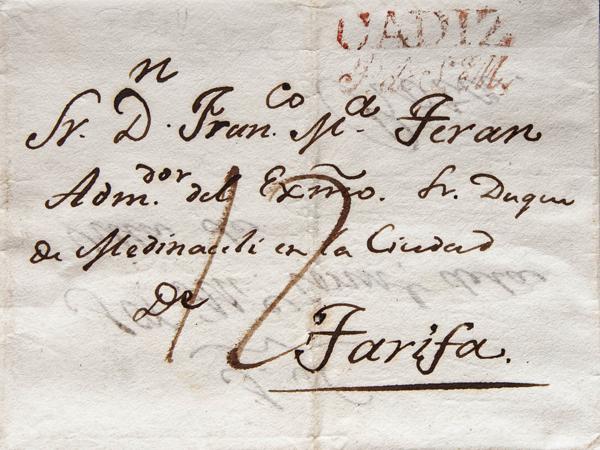 CADIZ
Sr. Dn. Franco. Ma. Feran
Admdor. del Exmo. Sr. Duque
de Medinaceli en la Ciudad
De
Tarifa.
12